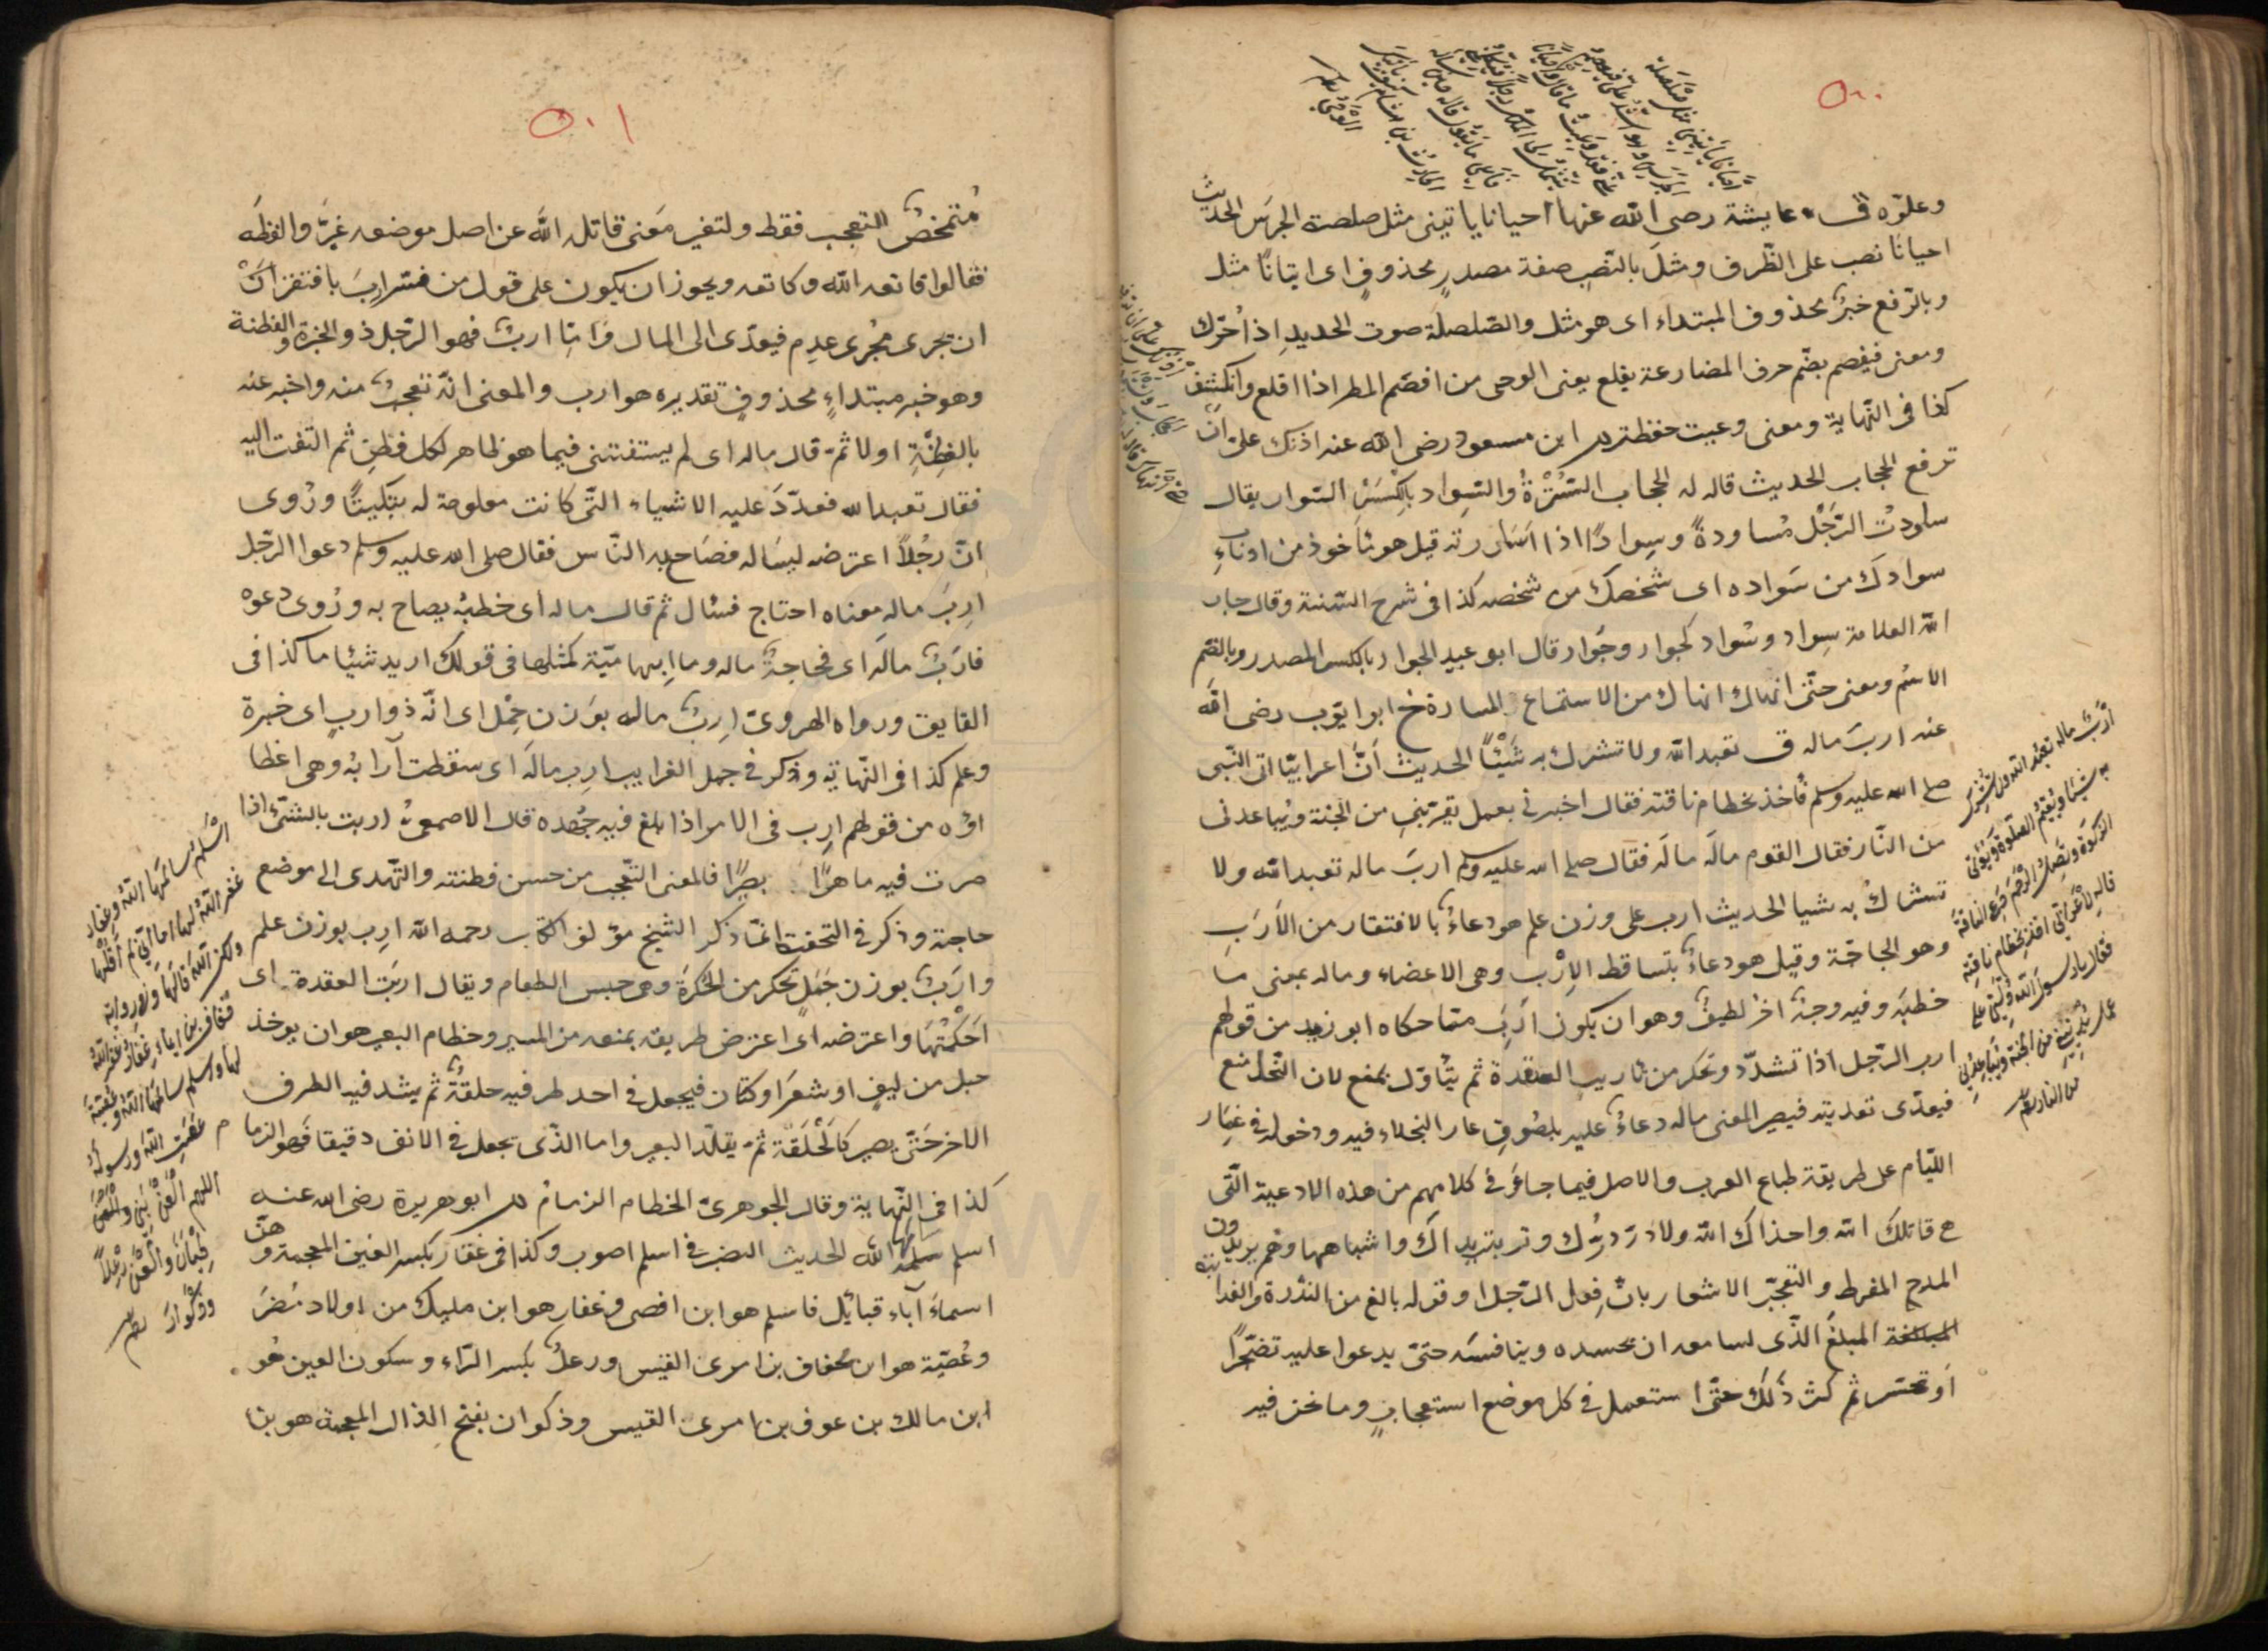 ٥٠٠
احيانا ياتيني مثل صلصلة
الجرس وهو اشده علي فيفصم
عني فقد وعيت ما قال واحيانا
يتمثل لي الملك رجلا فيكلمني
فاعي ما يقول قاله حين ساله
الحارث بن هشام كيف ياتيك
الوحي
وعلوه ق عايشة رضى الله عنها احيانا ياتينى مثل صلصة الجرس الحديث
احيانا نصب على الظرف ومثل بالنصب صفة مصدر محذوف اى ايتانا مثل
وبالرفع خبر محذوف المبتداء اى هو مثل والصلصلة صوت الحديد اذا حرك
ومعنى فيفصم بضم حرف المضارعة يقلع يعنى الوحى من افصم المطر اذا اقلع وانكشف
كذا فى النهاية ومعنى وعيت حفظت م ابن مسعود رضى الله عنه اذنك على ان
ترفع الحجاب الحديث قاله له الحجاب السترة والسواد بالكسر السوار يقال
ساودت الرجل مساودة وسوادا اذا اسررته قيل هو ماخوذ من ادناء
سوادك من سواده اى شخصك من شخصه كذا فى شرح السنة وقال جار
الله العلامة سواد وسواد كجوار وجوار قال ابو عبيد الجوار بالكسر المصدر وبالضم
الاسم ومعنى حتى انهاك انهاك من الاستماع المسارة خ ابو ايوب رضى الله
عنه ارب ماله ق تعبد الله ولا تشرك به شيئا الحديث ان اعرابيا اتى النبى
صلى الله عليه وسلم فاخذ بخطام ناقته فقال اخبرنى بعمل يقربنى من الجنة ويباعدنى
من النار فقال القوم ماله ماله فقال صلى الله عليه وسلم ارب ماله تعبد الله ولا
تشرك به شيا الحديث ارب على وزن علم هو دعاء بالافتقار من الارب
وهو الحاجة وقيل هو دعاء بتساقط الارب وهى الاعضاء وماله بمعنى ما
خطبه وفيه وجه اخر لطيف وهو ان يكون ارب مما حكاه ابو زيد من قولهم
ارب الرجل اذا تشدد وتحكر من تاريب العقدة ثم يتاول بمنع لان البخل منع
فيعدى تعديته فيصير المعنى ماله دعاء عليه بلصوق عار البخلاء فيه ودخوله فى غمار
اللئام على طريقة طباع العرب والاصل فيما جاء فى كلامهم من هذه الادعية التى
ح قاتلك الله واخذاك الله ولا در درك وتربت يداك واشباهها وهم يريدون
المدح المفرط والتعجب الاشعار بان فعل الرجل او قوله بالغ من الندرة والغرابة
المبلغ الذى لسامعه ان يحسده وينافسه حتى يدعوا عليه تضجرا
او تحسرا ثم كثر ذلك حتى استعمل فى كل موضع استعجاب وما نحن فيه
ارب ماله تعبد الله ولا تشرك
به شيئا وتقيم الصلوة وتؤتي
الزكوة وتصل الرحم ذر الناقة
قاله لاعرابي اخذ بخطام ناقته
فقال يا رسول الله دلني على
عمل يدنيني من الجنة ويباعدني
من النار
٥٠١
متمحض للتعجب فقط ولتغير معنى قاتله الله عن اصل موضعه غير والفظه
فقالوا قاتعه الله وكاتعه ويجوز ان يكون على قول من فسر ارب بافتقر ان
ان يجرى مجرى عدم فيعدى الى المال واما ارب فهو الرجل ذو الخبرة والفطنة
وهو خبر مبتداء محذوف تقديره هو ارب والمعنى انه تعجب منه واخبر عنه
بالفطنة اولا ثم قال ماله اى لم يستفتنى فيما هو ظاهر لكل فطن ثم التفت اليه
فقال تعبد الله فعدد عليه الاشياء التى كانت معلومة له تبكيتا وروى
ان رجلا اعترضه ليساله فصاح به الناس فقال صلى الله عليه وسلم دعوا الرجل
ارب ماله معناه احتاج فسال ثم قال ماله اى خطبه يصاح به وروى دعوه
فارب ماله اى فحاجة ماله وما ابهامية كمثلها فى قولك اريد شيئا ما كذا فى
الفايق ورواه الهروى ارب ماله بوزن حمل اى انه ذو ارب اى خبرة
وعلم كذا فى النهاية وذكر فى جمل الغرايب ارب ماله اى سقطت آرابه وهى اعضا
ؤه من قولهم ارب فى الامر اذا بلغ فيه جهده قال الاصمعى اربت بالشئ اذا
صرت فيه ماهرا بصيرا فالمعنى التعجب من حسن فطنته والتهدى الى موضع
حاجته وذكر فى التحفة انما ذكر الشيخ مؤلف الكتاب رحمه الله ارب بوزن علم
وارب بوزن جمل تحكر من الحكرة وهى حبس الطعام ويقال اربت العقدة اى
احكمتها واعترضه اى اعترض طريقه بمنعه من المسير وخطام البعير هو ان يوخذ
حبل من ليف او شعر او كتان فيجعل فى احد طرفيه حلقة ثم يشد فيه الطرف
الاخر حتى يصير كالحلقة ثم يقلد البعير واما الذى يجعل فى الانف دقيقا فهو الزما م
كذا فى النهاية وقال الجوهرى الخطام الزمام م ابو هريرة رضى الله عنه
اسلم سالمها الله الحديث النصب فى اسلم اصوب وكذا فى غفار بكسر الغين المعجمة وهى
اسماء آباء قبائل فاسلم هو ابن افصى وغفار هو ابن مليك من اولاد مضر
وعصية هو ابن خفاف بن امرى القيس ورعل بكسر الراء وسكون العين هو
ابن مالك بن عوف بن امرى القيس وذكوان بفتح الذال المعجمة هو بنا
اسلم سالمها الله وغفار
غفر الله لها اما اني لم اقلها
ولكن الله قالها
غفار غفر الله
لها واسلم سالمها الله وعصية
عصت الله ورسوله
اللهم العن بني
لحيان والعن رعلا
وذكوان